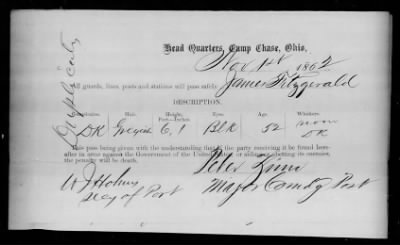 Duplicate
Head Quarters, Camp Chase, Ohio,
Nov 1st 1862
All guards, lines, posts and stations will pass safely James Fitzgerald
DESCRIPTION.
Complexion. Hair. Height, Feet—Inches. Eyes. Age. Whiskers.
DK Greyish 6,1 Blk 52 DK
This pass being given with the understanding that if the party receiving it be found hereafter in arms against the Government of the United States, or aiding or abetting its enemies, the penalty will be death.
Peter Zinn
W J Holmes Major Comdg Post
Secy of Post